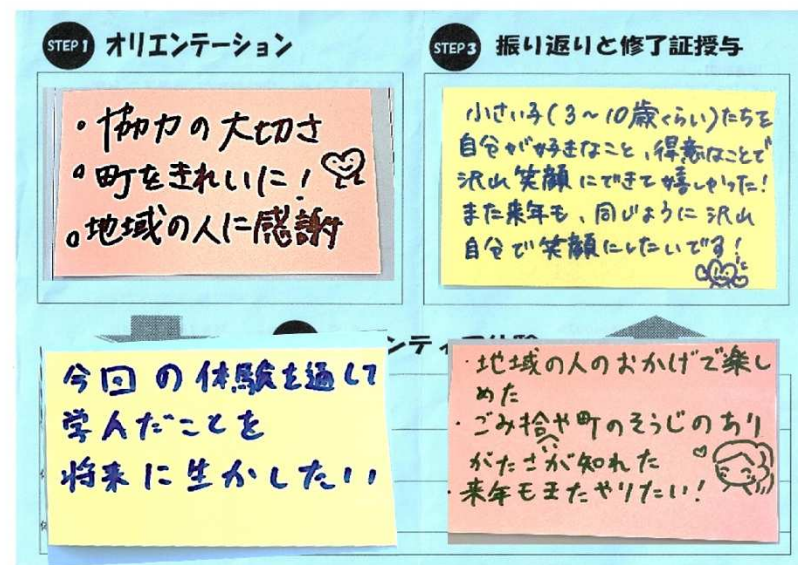 STEP1 オリエンテーション
・協力の大切さ
・町をきれいに!
・地域の人に感謝
STEP3 振り返りと修了証授与
小さい子(3〜10歳くらい)たちを
自分が好きなこと、得意なことで
沢山笑顔にできて嬉しかった!
また来年も、同じように沢山
自分で笑顔にしたいです!
ンティア体験
今回の体験を通して
学んだことを
将来に生かしたい
・地域の人のおかげで楽し
めた
・ごみ拾や町のそうじのあり
がたさが知れた
・来年もまたやりたい!